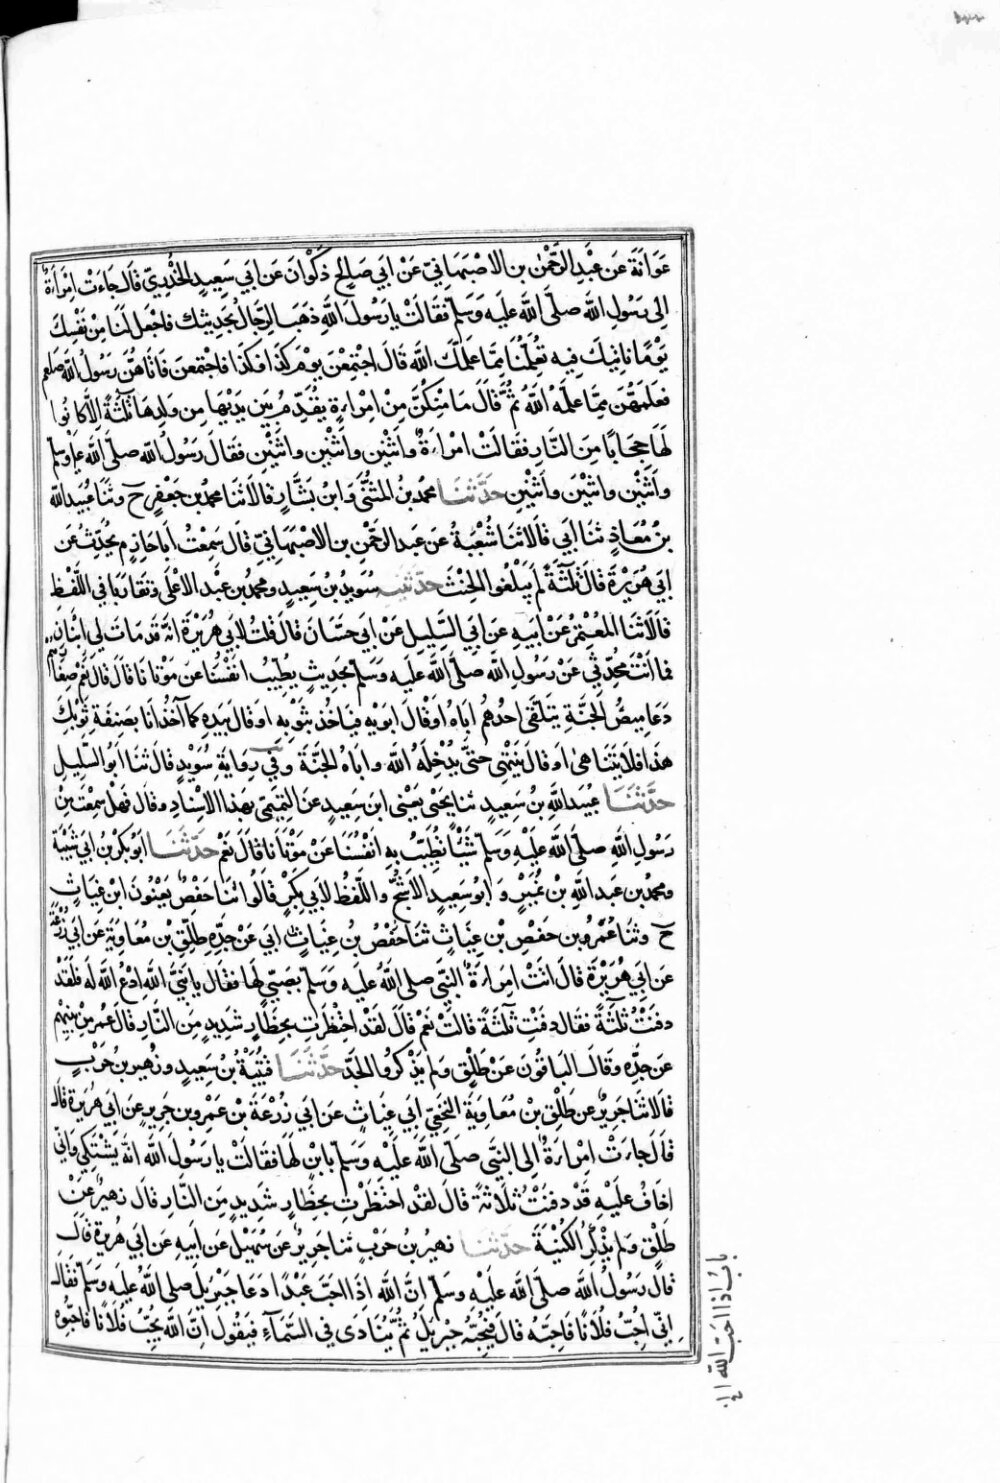 عَوَانَةَ عَن عَبْدِ الرَّحْمٰن بن الاصْبَهَانِيّ عَنْ ابي صَالِحٍ ذكْوَانَ عَن ابي سَعِيدٍ الخُدْرِيّ قَالَ جَاءَتْ امْرَاَةٌ
الى رَسُولِ اللّٰهِ صلّى اللّٰهُ عَليْهِ وَسَلّم فقَالَتْ يا رَسُولَ اللّٰهِ ذهَبَ الرِّجَالُ بحَدِيثِك فاجْعَل لَنَا مِنْ نَفْسِكَ
يَوْمًا نَاتِيكَ فِيهِ تُعَلِّمُنَا مِمَّا عَلّمَكَ اللّٰهُ قَالَ اجْتَمِعْنَ يوْمَ كَذَا وَكَذَا فاجْتمَعنَ فَاتَاهُنَّ رَسُولُ اللّٰهِ صلعم
فعَلّمَهُنَّ مِمَّا علّمَهُ اللّٰهُ ثمَّ قَالَ مَا مِنْكُنَّ مِنْ امْرَاءةٍ تُقَدِّمُ بَينَ يَدَيْهَا مِن وَلدِهَا ثلثَةً الّا كَانُوا
لَهَا حِجَابًا مِنَ النَّارِ فقَالَتْ امْرَاءةٌ واثنَيْن واثْنَيْن واثنَيْن فقَالَ رَسُولُ اللّٰه صلّى اللّٰه عليه وسلّم
واثنَيْن واثنَيْنَ واثنَيْنِ حَدَّثَنَا محمدُ بنُ المُثنَّى وَابنُ بَشَّارٍ قالَا ثنَا محمدُ بن جَعْفَرٍ ح وثنَا عُبَيدُ اللّٰه
بنُ مُعَاذٍ ثنا ابي قالَا ثنَا شُعْبَةُ عَن عَبدِ الرَّحْمٰنِ بن الاصْبَهَانيّ قَال سَمِعْتُ ابَا حَازِمٍ يُحَدِّثُ عَن
ابي هُرَيْرَةَ قَالَ ثلثَةً لَم يَبْلغُوا الحِنْثَ حَدَّثَنِي سُوَيْدُ بن سَعِيدٍ ومحمدُ بن عَبْدِ الأَعْلَى وتقَارَبَا في اللّفْظِ
قالَا ثَنَا المُعْتَمِرُ عَنْ ابيهِ عَن ابي السَّليلِ عَنْ ابي حَسَّانَ قالَ قُلتُ لابي هُرَيْرَةَ انّه قدْ مَاتَ لي ابْنَانِ
فما انتَ مُحَدِّثِي عَنْ رَسُولِ اللّٰهِ صلّى اللّٰهُ عَليْه وَسَلّم بحَدِيثٍ يُطَيِّبُ انفُسَنَا عَن مَوْتانَا قَالَ قَالَ نَعَمْ صِغَارُهُم
دَعَامِيصُ الجَنَّةِ يَتَلَقَّى احَدُهُم ابَاهُ اوقَالَ ابَوَيْهِ فيَاخُذُ بثَوْبِهِ اوقَال بيَدِهِ كَمَا آخُذُ انَا بصَنِفَةِ ثوْبِكَ
هذَا فلَا يَتَنَاهَى اوقالَ ينْتَهِي حَتّى يُدْخِلَهُ اللّٰه واباهُ الجَنَّةَ وفي رِوَايَةِ سُوَيْدٍ قالَ ثنَا ابُو السَّليلِ
حَدَّثَنَا عُبَيدُ اللّٰهِ بنُ سَعِيدٍ ثنا يَحْيَى يَعْنى ابنَ سَعِيدٍ عَن التّيْمِيّ بهَذَا الاسْنَادِ وقَالَ فهَل سَمِعْتَ مِنْ
رَسُولِ اللّٰهِ صلّى اللّٰهُ عَلَيْهِ وَسَلّمَ شَيْئًا تُطَيِّبُ بِهِ انفُسَنَا عَنْ مَوْتانَا قَالَ نَعَمْ حَدَّثَنَا ابُو بَكرِ بنُ ابي شَيْبَةَ
ومحمدُ بن عَبدِ اللّٰهِ بْن نُمَيْرٍ وَابُو سَعِيدٍ الاشَجُّ واللّفْظُ لابي بَكرٍ قَالُوا ثنَا حَفْصٌ يَعْنُونَ ابْنَ غِيَاثٍ
ح وثَنا عُمَرُ بن حَفصِ بْن غِيَاثٍ ثنَا حَفْصُ بن غِيَاثٍ ابي عَنْ جَدِّهِ طَلْقِ بْن مُعَاوِيَةَ عَن ابي زُرْعَةَ
عَن ابي هُرَيْرَةَ قَالَ اتَتْ امْرَاءَةٌ النّبيَّ صلّى اللّٰهُ عَليْهِ وَسَلّم بصَبيٍّ لهَا فقَالَتْ يَا نَبيَّ اللّٰهِ ادْعُ اللّٰهَ لَهُ فلقَدْ
دفَنْتُ ثلثَةً فقالَ دفَنْتِ ثلثَةً قالَتْ نَعَمْ قالَ لقَدْ احْتَظَرْتِ بحِظَارٍ شَدِيدٍ مِنَ النَّارِ قَالَ عُمَرُ مِنْ بَيْنِهم
عَن جَدِّهِ وقَالَ البَاقُونَ عَن طَلْقٍ وَلم يَذْكُرُوا الجَدَّ حَدَّثَنَا قُتَيْبَةُ بنُ سَعِيدٍ وَزُهَيرُ بنُ حَرْبٍ
قالَا ثنا جَريرٌ عن طَلْقِ بْن مُعَاويَةَ النّخَعِيّ ابي غِيَاثٍ عَن ابي زُرْعَةَ بْن عَمْرِو بن جَرِيرٍ عَن ابي هُرَيرَةَ قَالَ
قَالَ جاءَتْ امْرَاءَةٌ الى النّبيّ صلّى اللّٰه عَلَيْهِ وَسَلّم بابْنٍ لَهَا فقَالَتْ يا رَسُولَ اللّٰه انّه يَشْتَكِي وَانّي
اخَافُ عليْهِ قَدْ دفَنْتُ ثلَاثَةً قَالَ لقَدْ احْتَظَرْتِ بحِظَارٍ شَدِيدٍ مِنَ النّارِ قَالَ زهيرٌ عَنْ
طَلْقٍ وَلم يَذْكُر الكُنْيَةَ حَدَّثَنَا زهيرُ بن حَرْبٍ ثنا جَريرٌ عَن سُهَيْلٍ عَن ابيهِ عَن ابي هُريرةَ قَالَ
قالَ رَسُولُ اللّٰهِ صلّى اللّٰهُ عَلَيْهِ وَسلّم انَّ اللّٰهَ اِذَا احَبَّ عَبْدًا دَعَا جبْريلَ صلى اللّٰه عليْهِ وَسَلّم فقَالَ
اِنّي اُحِبُّ فُلَانًا فاحِبَّهُ قَالَ فيُحِبُّهُ جبْريلُ ثمَّ يُنَادِى في السَّمَآءِ فيَقُولُ اِنَّ اللّٰهَ يُحِبُّ فُلَانًا فاحِبُّوهُ
باب اذا احب اللّٰه